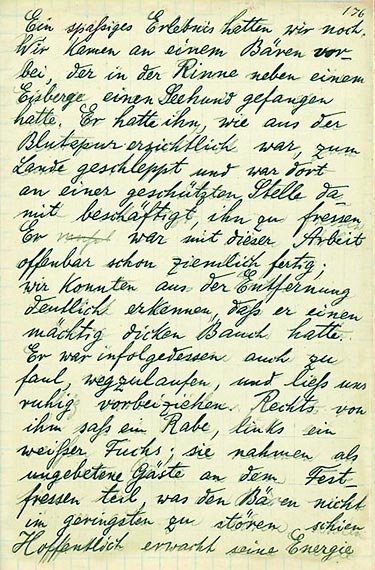 176
Ein spaßiges Erlebnis hatten wir noch.
Wir kamen an einem Bären vor-
bei, der in der Rinne neben einem
Eisberge einen Seehund gefangen
hatte. Er hatte ihn, wie aus der
Blutspur ersichtlich war, zum
Lande geschleppt und war dort
an einer geschützten Stelle da-
mit beschäftigt, ihn zu fressen
Er war mit dieser Arbeit
offenbar schon ziemlich fertig;
wir konnten aus der Entfernung
deutlich erkennen, daß er einen
mächtig dicken Bauch hatte.
Er war infolgedessen auch zu
faul, wegzulaufen, und ließ uns
ruhig vorbeiziehen. Rechts von
ihm saß ein Rabe, links ein
weißer Fuchs; sie nahmen als
ungebetene Gäste an dem Fest-
fressen teil, was den Bären nicht
im geringsten zu stören schien
Hoffentlich erwacht seine Energie